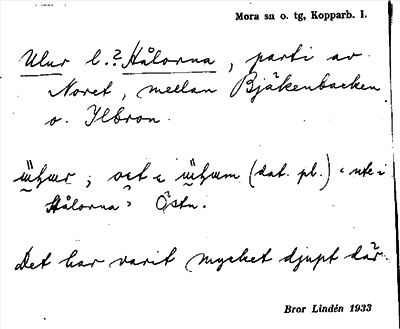 Mora sn o. tg, Kopparb. l.
Ulur l. ? Hålorna, parti av
Noret, mellan Bjäkenbacken
o. Ylbron.
; (dat. pl.) "ute i
Hålorna" Östn.
Det har varit mycket djupt där.
Bror Lindén 1933